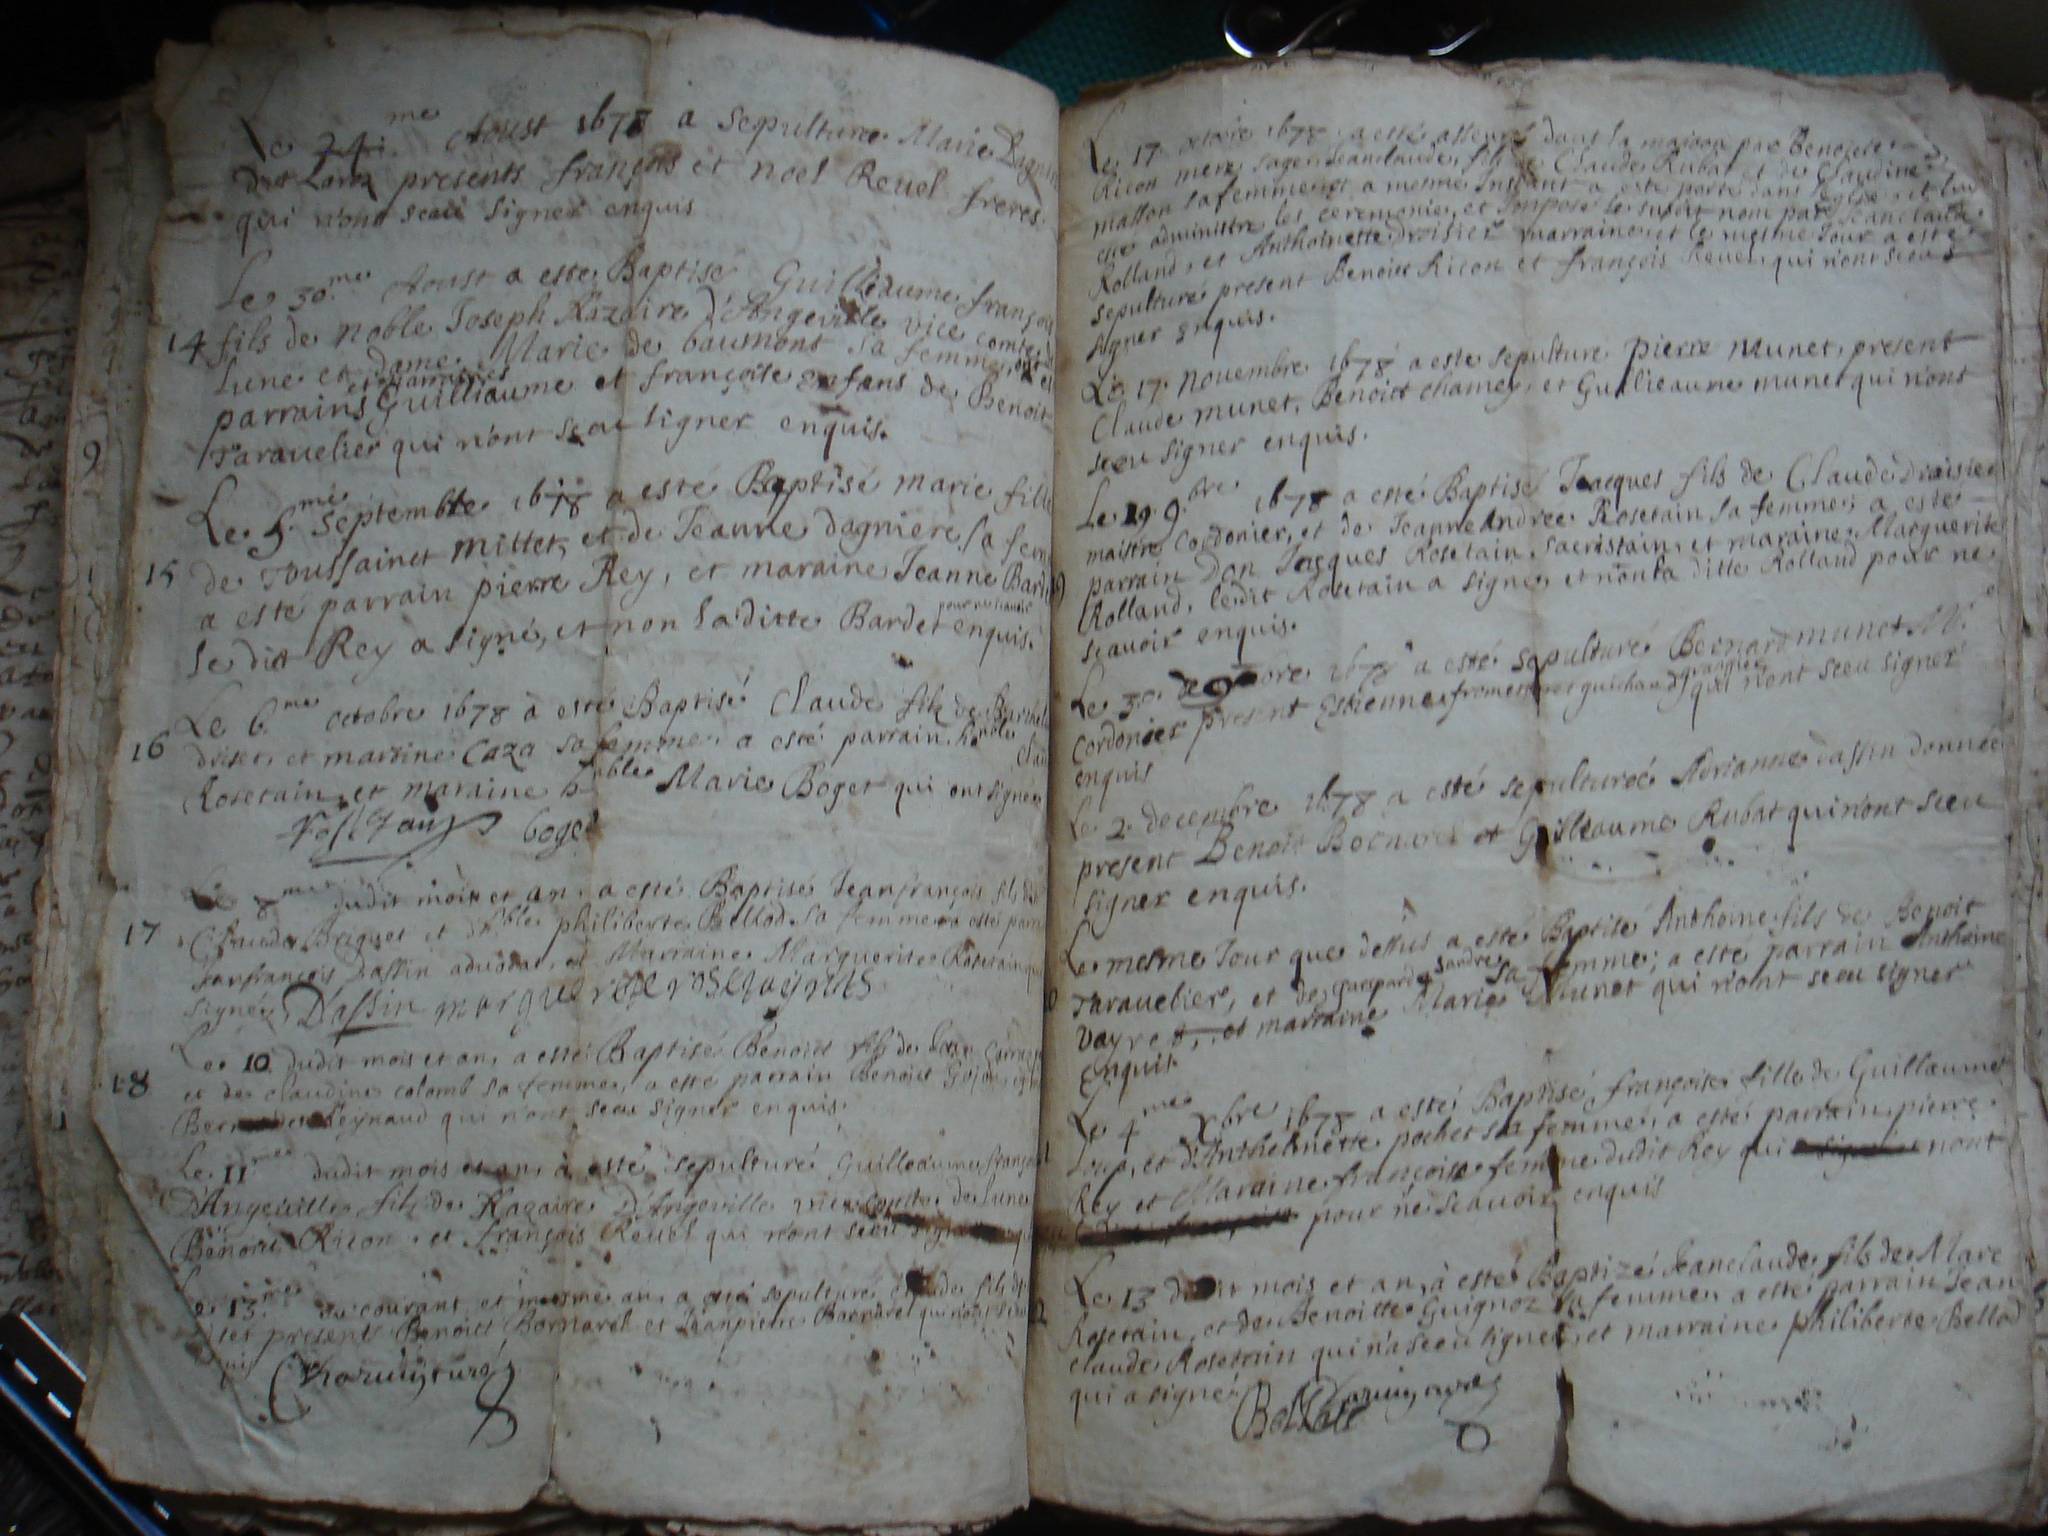 Le 24.me Aoust 1678 a sepulture Marie
dit Lara presents françois et noel Reuel freres.
qui n'ont sceu signer enquis
Le 30.me Aoust a esté Baptisé Guilleaume françois
14 fils de noble Joseph Nazaire d'Angeville vice comte de
Lune et dame Marie de baumont sa femme, ont esté
parrains et marraines Guilliaume et françoise enfans de Benoit
Tarauelier qui n'ont sceu signer enquis.
Le 5.me Septembre 1678 a esté Baptisé marie fille
15 de Toussainct Millet, et de Jeanne dagniere sa femme
a esté parrain pierre Rey, et maraine Jeanne Bardet
le dit Rey a signé, et non la ditte Bardet pour ne scavoir enquis.
Le 6.me octobre 1678 a esté Baptisé Claude filz de
16 et martine Caza sa femme, a esté parrain hnole Claude
Rosetain et maraine h.able Marie Boget qui ont signés
Rossetain boget
Le 8.me dudit mois et an, a esté Baptisé Jeanfrançois fils de
17 Claude Briquet et d'h.ble philiberte Bellod sa femme a esté parrain
Janfrançois Dassin advocat, et Marraine Marguerite Rosetain qui
signés D'assin marguerite
Le 10 dudit mois et an, a esté Baptisé Benoict filz de
18 et de claudine colomb sa femme, a esté parrain Benoict Gojon,
Reynaud qui n'ont sceu signer enquis.
Le 11.me dudit mois et an, à esté sepulturé Guilleaume françois
D'Angeuille filz de Nazaire D'Angeville vice comte de Lune
Benoict Ricon, et françois Reuel qui n'ont sceu signer
Le 13.me du courant et mesme an, a esté sepulturé claude fils de
present Benoict Bornarel et Jeanpierre Bornarel qui n'ont sceu
Le 17 octobre 1678 a esté dans la maison par Benoiste
Ricon mere sage Jeanclaude, fils de Claude Rubat et de Claudine
masson sa femme, et a mesme Instant a esté porté dans leglise, et luy
esté administré les ceremonies, et Imposé le susdit nom par Jeanclaude
Rolland, et Anthoinette Droisier marraine, et le mesme Jour a esté
sepulturé present Benoict Ricon et françois Reuel, qui n'ont sceu
signer enquis.
Le 17 novembre 1678 a esté sepulturé pierre Munet, present
Claude munet, Benoict chamey, et Guilleaume munet qui n'ont
sceu signer enquis.
Le 19 9.bre 1678 a esté Baptisé Jacques fils de Claude Droisier
maistre cordonier, et de Jeanne Andrée Rosetain sa femme, a esté
parrain Don Jacques Rosetain sacristain, et maraine Marguerite
Rolland, ledit Rosetain a signé, et non la ditte Rolland pour ne
scauoir enquis.
Le 30 1678 a esté sepulturé Bernard munet M.e
cordonier present Estienne guichard grangier qui n'ont sceu signer
enquis
Le 2. decembre 1678 a esté sepulturée Adrianne dassin donnée
present Benoit Bornarel et Guilleaume Rubat qui n'ont sceu
signer enquis.
Le mesme Jour que dessus a esté Baptisé Anthoine fils de Benoit
Tarauelier, et de gasparde sa femme; a esté parrain Anthoine
Vayret, et marraine Marie Munet qui n'ont sceu signer
Enquis.
Le 4.me Xbre 1678 a esté Baptisé françoise fille de Guillaume
Loup, et d'Anthelmette pochet sa femme, a esté parrain, pierre
Rey et Maraine françoise femme dudit Rey qui n'ont
pour ne scauoir enquis
Le 13 dudit mois et an, à esté Baptizé Jeanclaude filz de Marc
Rosetain, et de Benoitte Guignoz sa femme, a esté parrain Jean
claude Rosetain qui n'a sceu signer, et marraine philiberte Bellod
qui a signé
Bellod